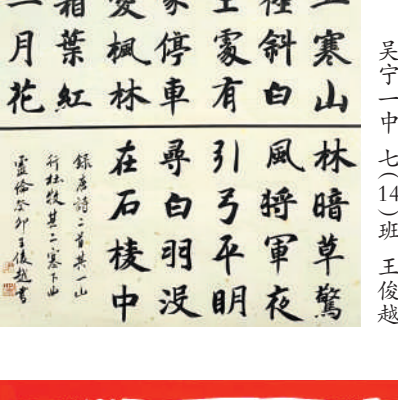 寒山
徑斜白
處有
家停車
愛楓林
霜葉紅
二月花
林暗草驚
風將軍夜
引弓平明
尋白羽没
在石棱中
錄唐詩二首其一山
行杜牧其二塞下曲
癸卯王俊越書
吴宁一中 七(14)班 王俊越